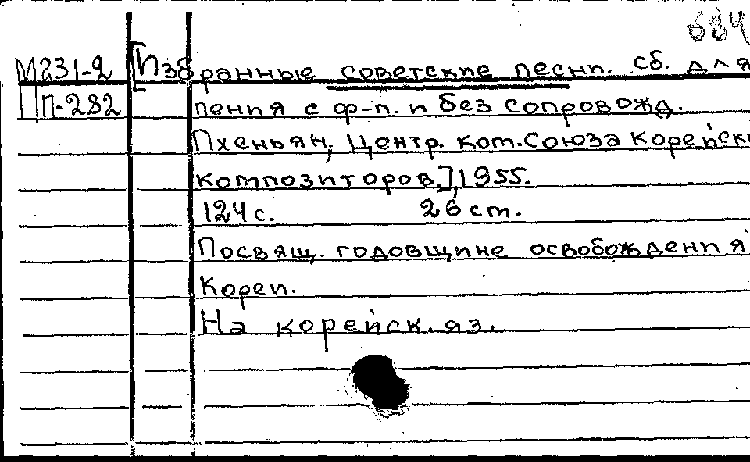 684
М231-2 [Избранные советские песни. сб. для
Пп-282 пения с ф-п. и без сопровожд.
Пхеньян, Центр. ком. Союза корейски
композиторов], 1955.
124 с. 26 ст.
Посвящ. годовщине освобождения
Кореи.
На корейск. яз.